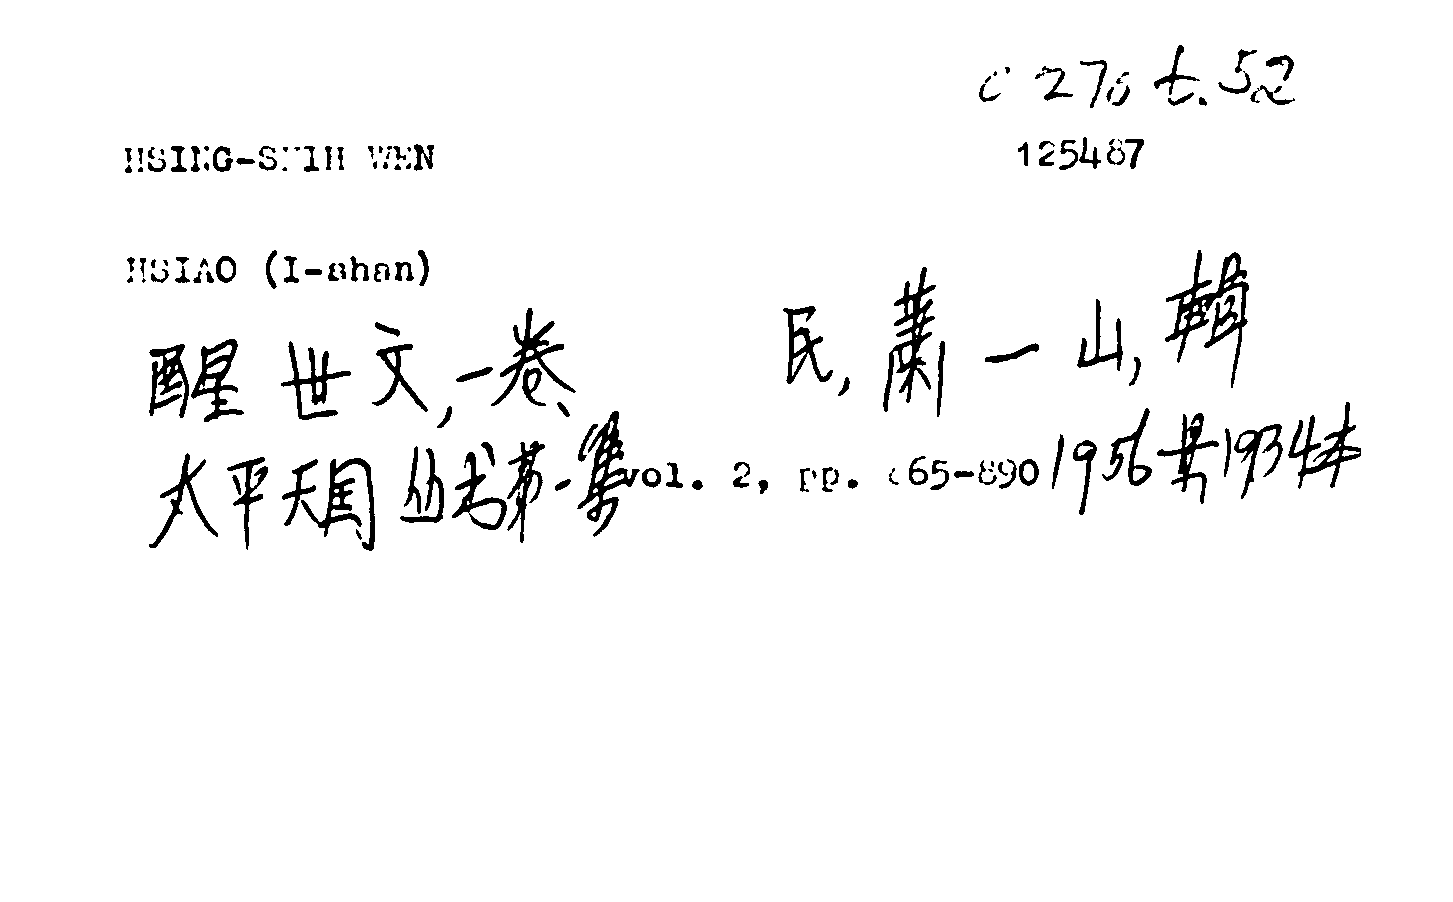 c 276 t.52
HSING-SHIH WEN 125487
HSIAO (I-shan)
醒世文,一卷、 民,蕭一山,輯
太平天国丛书第一集 vol. 2, pp. 865-890 1956 景1934本